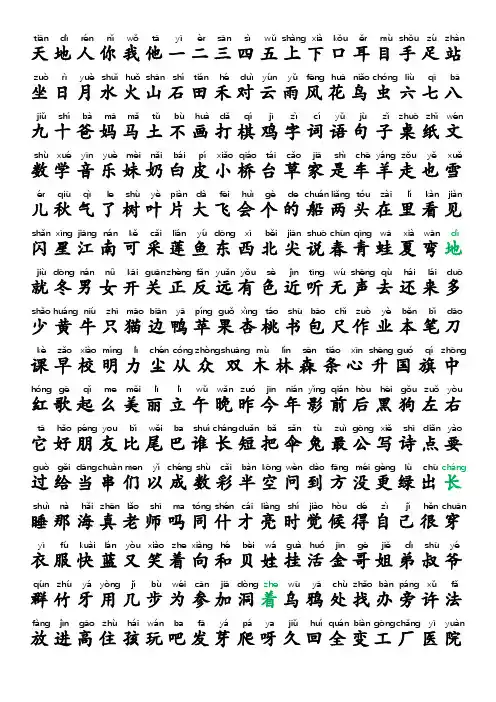 tiān dì rén nǐ wǒ tā yī èr sān sì wǔ shàng xià kǒu ěr mù shǒu zú zhàn
天 地 人 你 我 他 一 二 三 四 五 上 下 口 耳 目 手 足 站
zuò rì yuè shuǐ huǒ shān shí tián hé duì yún yǔ fēng huā niǎo chóng liù qī bā
坐 日 月 水 火 山 石 田 禾 对 云 雨 风 花 鸟 虫 六 七 八
jiǔ shí bà mā mǎ tǔ bù huà dǎ qí jī zì cí yǔ jù zǐ zhuō zhǐ wén
九 十 爸 妈 马 土 不 画 打 棋 鸡 字 词 语 句 子 桌 纸 文
shù xué yīn yuè mèi nǎi bái pí xiǎo qiáo tái cǎo jiā shì chē yáng zǒu yě xuě
数 学 音 乐 妹 奶 白 皮 小 桥 台 草 家 是 车 羊 走 也 雪
ér qiū qì le shù yè piàn dà fēi huì gè de chuán liǎng tóu zài lǐ kàn jiàn
儿 秋 气 了 树 叶 片 大 飞 会 个 的 船 两 头 在 里 看 见
shǎn xīng jiāng nán kě cǎi lián yú dōng xī běi jiān shuō chūn qīng wā xià wān dì
闪 星 江 南 可 采 莲 鱼 东 西 北 尖 说 春 青 蛙 夏 弯 地
jiù dōng nán nǚ kāi guān zhèng fǎn yuǎn yǒu sè jìn tīng wú shēng qù hái lái duō
就 冬 男 女 开 关 正 反 远 有 色 近 听 无 声 去 还 来 多
shǎo huáng niú zhī māo biān yā píng guǒ xìng táo shū bāo chǐ zuò yè běn bǐ dāo
少 黄 牛 只 猫 边 鸭 苹 果 杏 桃 书 包 尺 作 业 本 笔 刀
kè zǎo xiào míng lì chén cóng zhòng shuāng mù lín sēn tiáo xīn shēng guó qí zhōng
课 早 校 明 力 尘 从 众 双 木 林 森 条 心 升 国 旗 中
hóng gē qǐ me měi lì lì wǔ wǎn zuó jīn nián yǐng qián hòu hēi gǒu zuǒ yòu
红 歌 起 么 美 丽 立 午 晚 昨 今 年 影 前 后 黑 狗 左 右
tā hǎo péng you bǐ wěi ba shuí cháng duǎn bǎ sǎn tù zuì gōng xiě shī diǎn yào
它 好 朋 友 比 尾 巴 谁 长 短 把 伞 兔 最 公 写 诗 点 要
guò gěi dāng chuàn men yǐ chéng shù cǎi bàn kōng wèn dào fāng méi gèng lǜ chū cháng
过 给 当 串 们 以 成 数 彩 半 空 问 到 方 没 更 绿 出 长
shuì nà hǎi zhēn lǎo shī ma tóng shén cái liàng shí jiào hòu dé zì jǐ hěn chuān
睡 那 海 真 老 师 吗 同 什 才 亮 时 觉 候 得 自 己 很 穿
yī fú kuài lán yòu xiào zhe xiàng hé bèi wá guà huó jīn gē jiě dì shū yé
衣 服 快 蓝 又 笑 着 向 和 贝 娃 挂 活 金 哥 姐 弟 叔 爷
qún zhú yá yòng jǐ bù wèi cān jiā dòng zhe wū yā chù zhǎo bàn páng xǔ fǎ
群 竹 牙 用 几 步 为 参 加 洞 着 乌 鸦 处 找 办 旁 许 法
fàng jìn gāo zhù hái wán ba fā yá pá ya jiǔ huí quán biàn gōng chǎng yī yuàn
放 进 高 住 孩 玩 吧 发 芽 爬 呀 久 回 全 变 工 厂 医 院